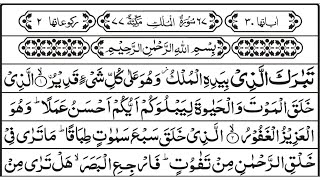 اٰیاتها ۳۰ ۶۷ سُوْرَةُ الْمُلْكِ مَكِّیَّةٌ ۷۷ رکوعاتها ۲
بِسْمِ اللّٰهِ الرَّحْمٰنِ الرَّحِیْمِ
تَبٰرَكَ الَّذِیْ بِیَدِهِ الْمُلْكُ وَهُوَ عَلٰی كُلِّ شَیْءٍ قَدِیْرُ ۙ۝۱ الَّذِیْ
خَلَقَ الْمَوْتَ وَالْحَیٰوةَ لِیَبْلُوَكُمْ اَیُّكُمْ اَحْسَنُ عَمَلًا ؕ وَهُوَ
الْعَزِیْزُ الْغَفُوْرُ ۙ۝۲ الَّذِیْ خَلَقَ سَبْعَ سَمٰوٰتٍ طِبَاقًا ؕ مَا تَرٰی فِیْ
خَلْقِ الرَّحْمٰنِ مِنْ تَفٰوُتٍ ؕ فَارْجِعِ الْبَصَرَ ۙ هَلْ تَرٰی مِنْ